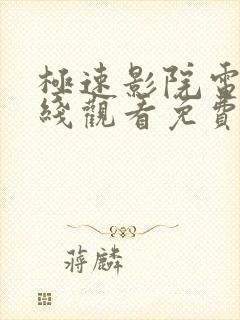 極速影院電
綫觀看免費
蔣麟